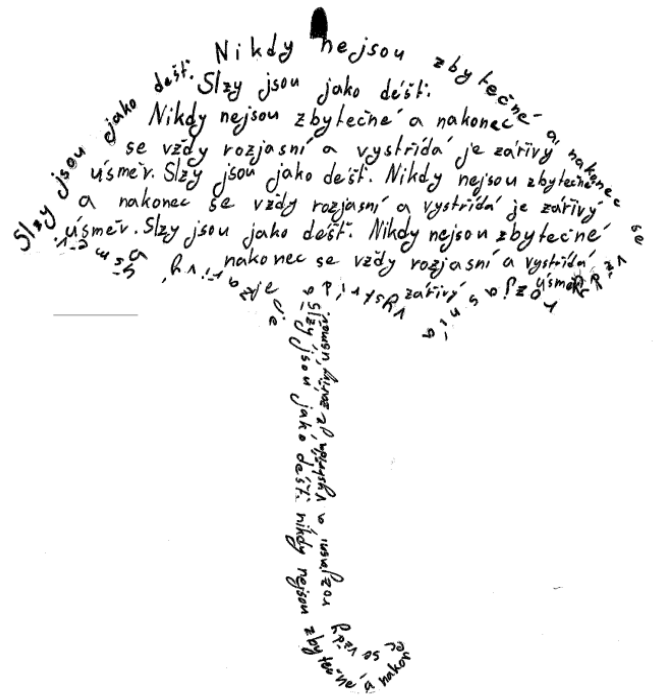 Slzy jsou jako déšť. Nikdy nejsou zbytečné a nakonec se vždy rozjasní a vystřídá je zářivý úsměv.
Slzy jsou jako déšť.
Nikdy nejsou zbytečné a nakonec
se vždy rozjasní a vystřídá je zářivý
úsměv. Slzy jsou jako déšť. Nikdy nejsou zbytečné
a nakonec se vždy rozjasní a vystřídá je zářivý
úsměv. Slzy jsou jako déšť. Nikdy nejsou zbytečné
nakonec se vždy rozjasní a vystřídá
zářivý úsměv
Slzy jsou jako déšť nikdy nejsou zbytečné a nakonec se vždy rozjasní a vystřídá je zářivý úsměv